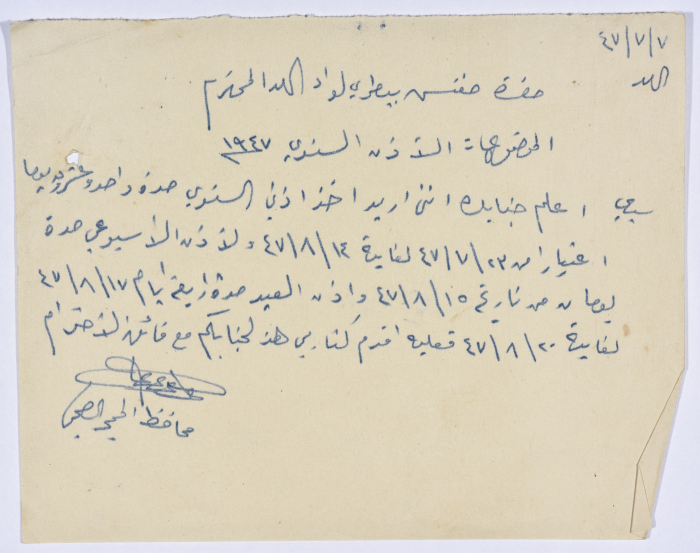 ٤٧/٧/٧
اللد
حضرة مفتش بيطري لواء اللد المحترم
الموضوع الأذن السنوي ١٩٤٧
سيدي اعلم جنابك انني اريد اخذ اذني السنوي مدة واحد وعشرون يوما
اعتبارا من ٤٧/٧/٢٣ لغاية ٤٧/٨/١٤ والأذن الأسبوعي مدة
يومان من تاريخ ٤٧/٨/١٥ واذن العيد مدة اربعة ايام ٤٧/٨/١٧
لغاية ٤٧/٨/٢٠ فعليه اقدم كتابي هذا لجنابكم مع فائق الاحترام
محافظ الحجر الصحي